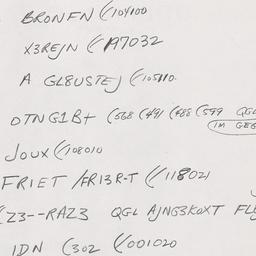 BRONFN ((104100
X3REJN ((197032
A GL8USTEJ ((105110.
OTNG1B+ (568 (491 (488 (599 QGL
(IM GEG
JOUX ((108010
FRIET /FR13R-T ((118021
Z3--RAZ3 QGL AJNG3KOXT FL
IDN (302 ((001020